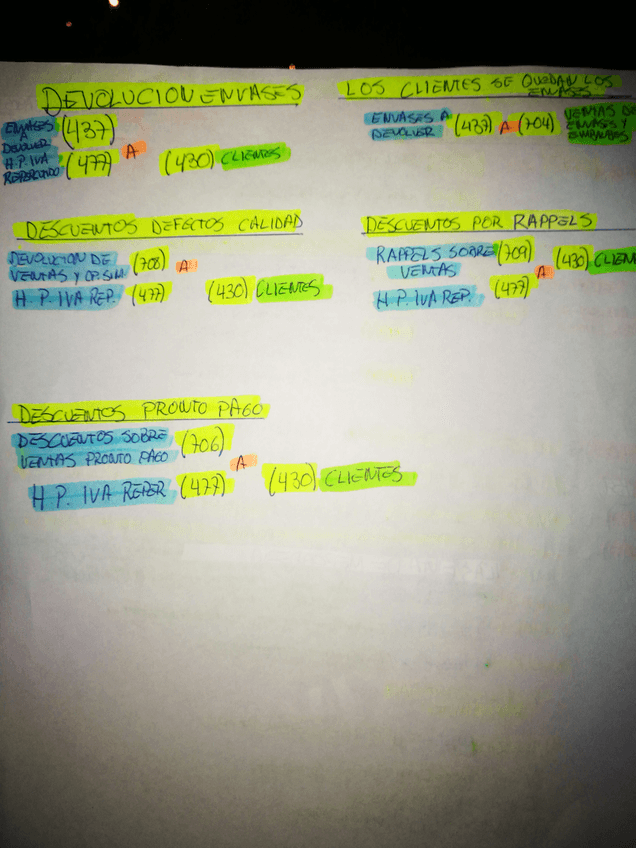 DEVOLUCION ENVASES
ENVASES A DEVOLVER (437)
A
H.P. IVA REPERCUTIDO (477) (430) CLIENTES
LOS CLIENTES SE QUEDAN LOS ENVASES
ENVASES A DEVOLVER (437) A (704) VENTAS DE ENVASES Y EMBALAJES
DESCUENTOS DEFECTOS CALIDAD
DEVOLUCION DE VENTAS Y OP. SIM. (708) A
H. P. IVA REP. (477) (430) CLIENTES
DESCUENTOS POR RAPPELS
RAPPELS SOBRE VENTAS (709) A (430) CLIEN
H.P. IVA REP. (477)
DESCUENTOS PRONTO PAGO
DESCUENTOS SOBRE VENTAS PRONTO PAGO (706)
A
H P. IVA REPER (477) (430) CLIENTES